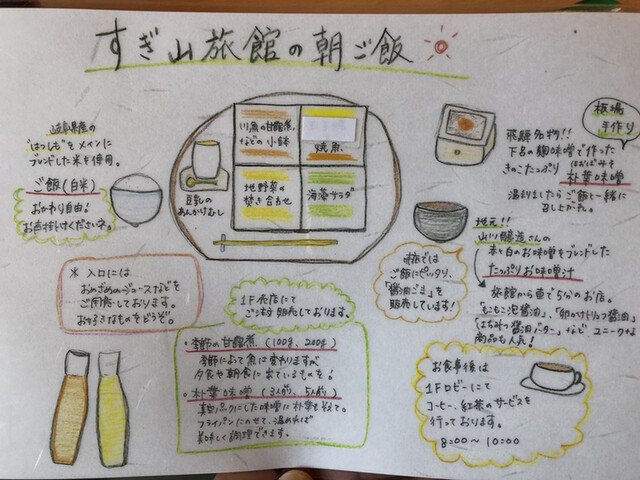 すぎ山旅館の朝ご飯
岐阜県産の
"はつしも"をメインに
ブレンドした米を使用。
ご飯(白米)
おかわり自由!
お声がけくださいネ。
川魚の甘露煮
などの小鉢
焼魚
地野菜の
焚き合わせ
海藻サラダ
豆乳の
あんかけむし
板場
手作り
飛騨名物!!
下呂の麹味噌で作った
きのこたっぷり
朴葉味噌
温まりましたらご飯と一緒に
召し上がれ。
地元!!
山川醸造さんの
赤と白のお味噌をブレンドした
たっぷりお味噌汁
旅館から車で5分のお店。
「もこもこ泡醤油」、「卵かけトリュフ醤油」
「はちみつ醤油バター」など ユニークな
商品も人気!
売店では
ご飯にピッタリ、
「醤油ごま」を
販売しています!
※ 入口には
おめざめのジュースなどを
ご用意しております。
お好きなものをどうぞ。
1F売店にて
ご注文 販売しております。
・季節の甘露煮 (100g、200g)
季節によって魚は変わりますが
夕食や朝食に出ているものを!
・朴葉味噌 (3人前、5人前)
真空パックにした味噌に朴葉を添えて。
フライパンにのせて、温めれば
美味しく調理できます。
お食事後は
1Fロビーにて
コーヒー、紅茶のサービスを
行っております。
8:00〜10:00